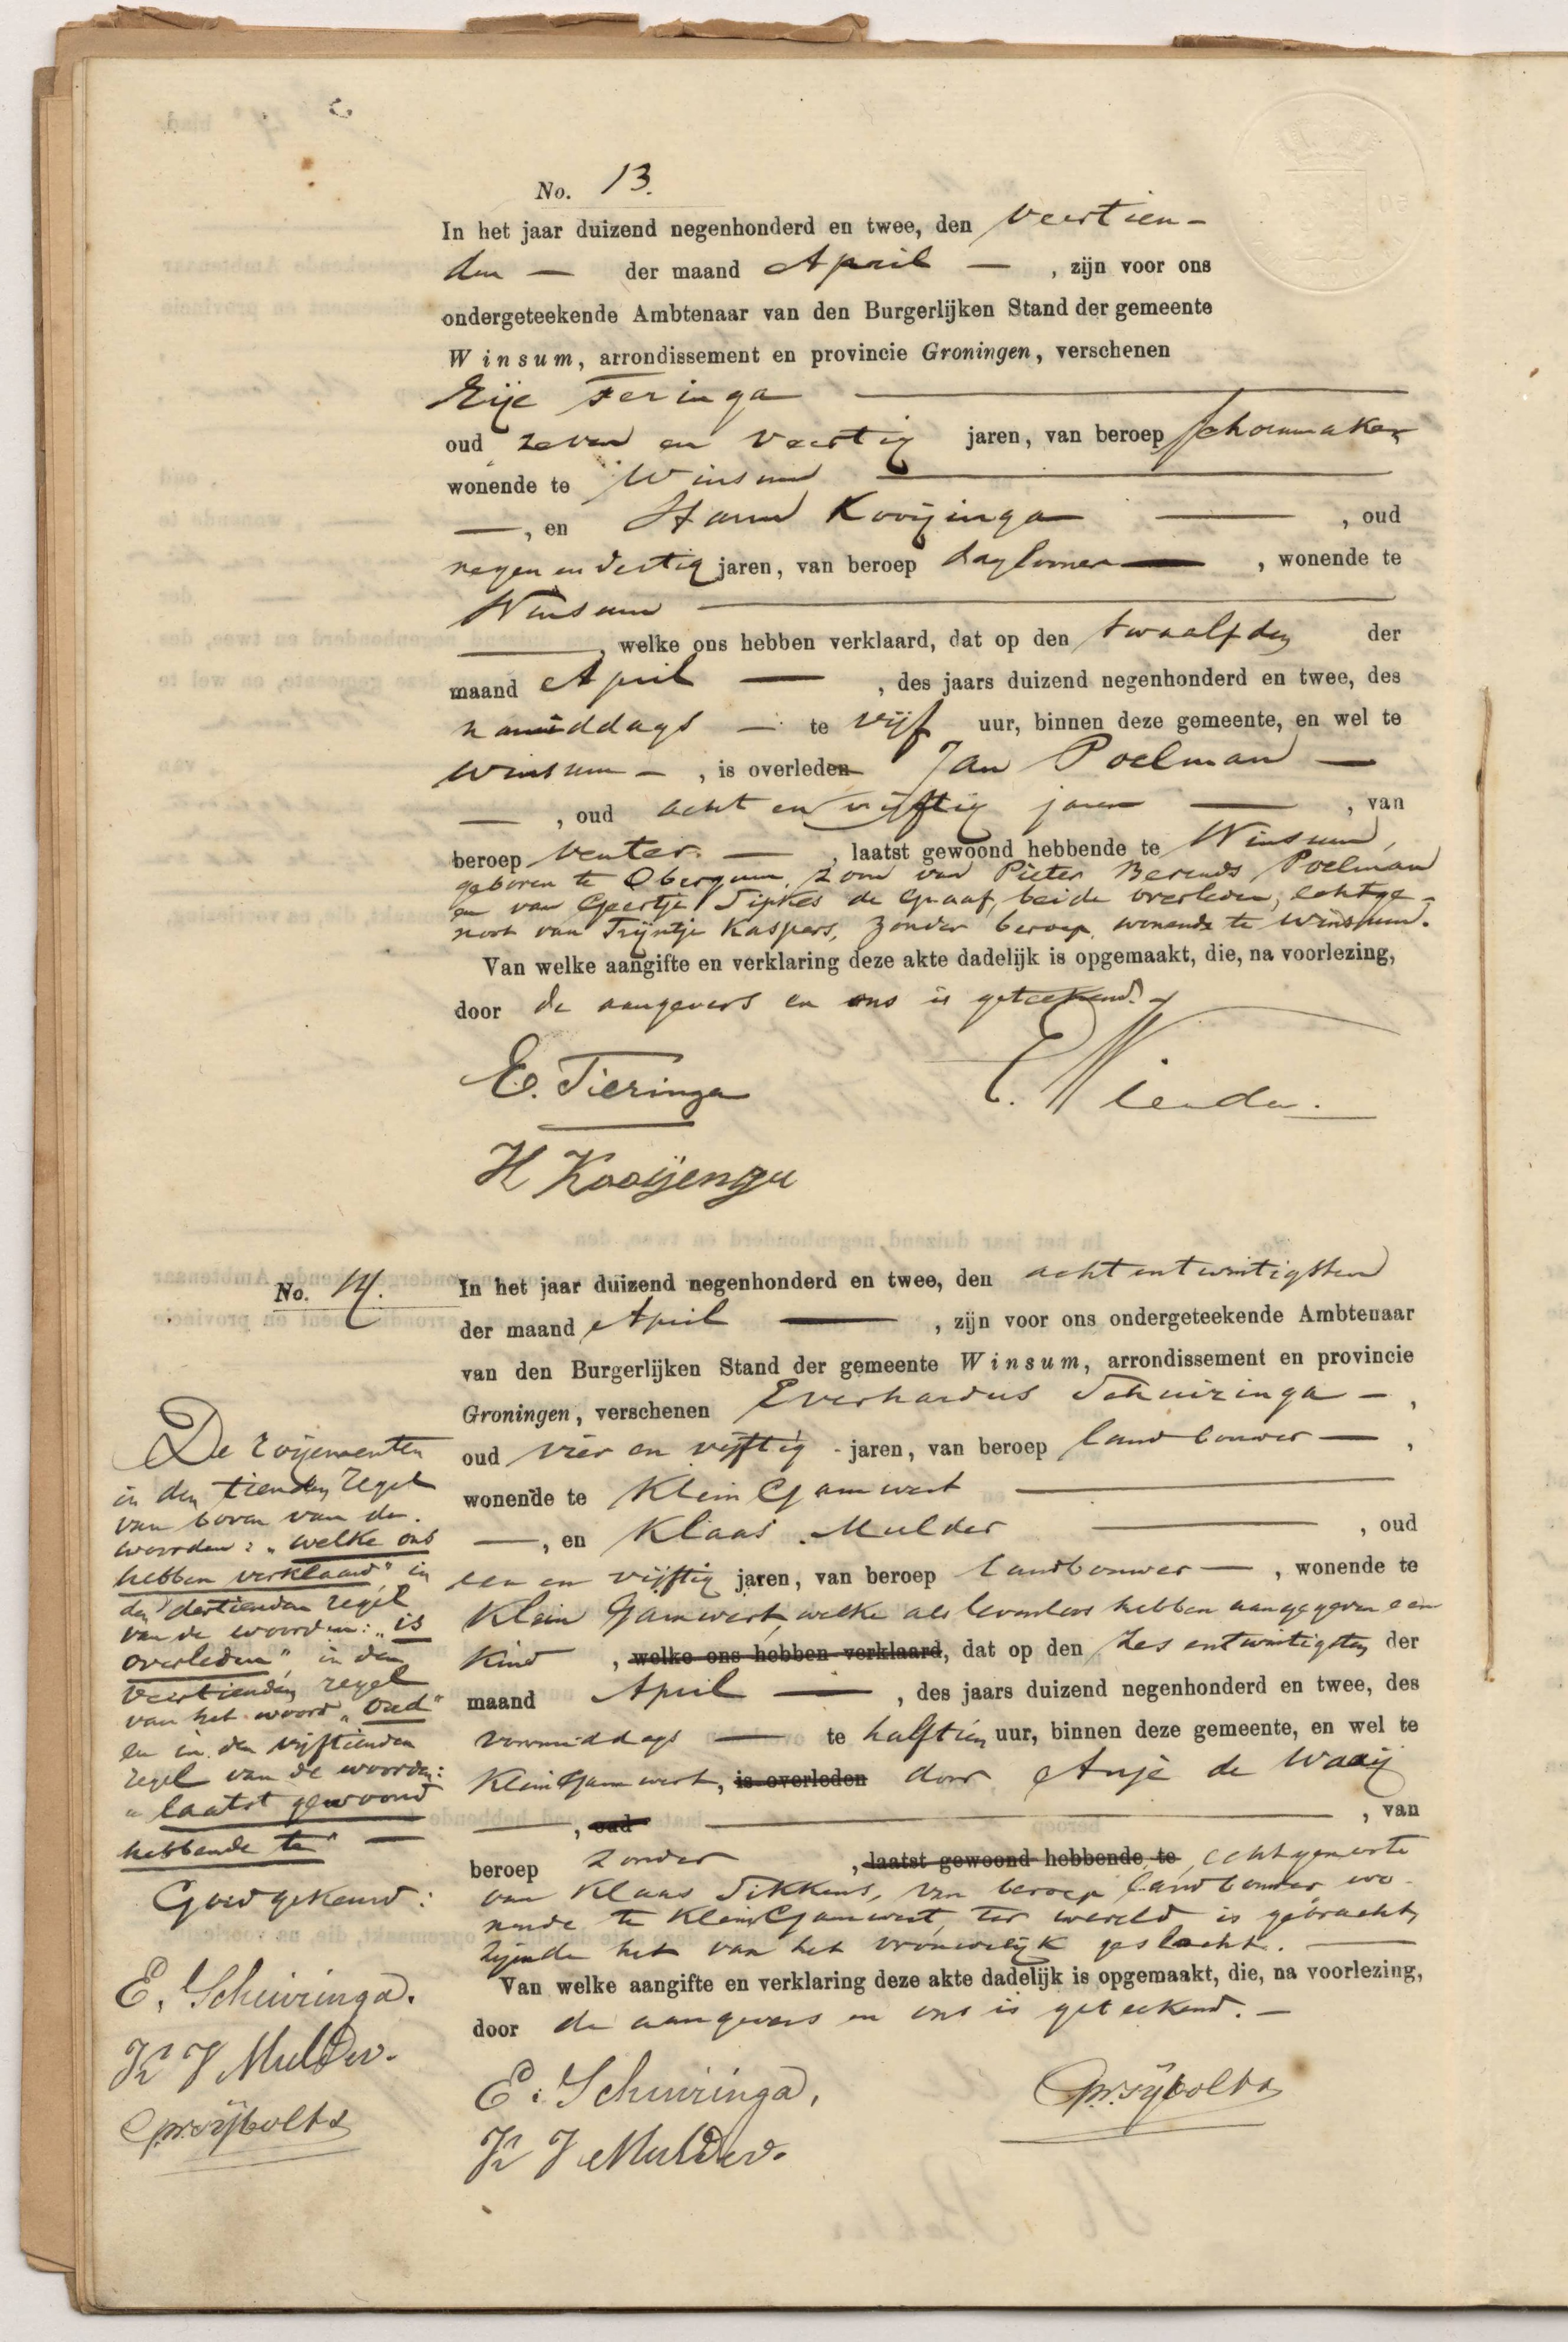 No. 13.
In het jaar duizend negenhonderd en twee, den veertien-
den — der maand April — , zijn voor ons
ondergeteekende Ambtenaar van den Burgerlijken Stand der gemeente
Winsum, arrondissement en provincie Groningen, verschenen
Eije Feringa
oud zeven en veertig jaren, van beroep schoenmaker
wonende te Winsum
—, en Harm Kooijinga — , oud
negen en dertig jaren, van beroep dagloner — , wonende te
Winsum —
— , welke ons hebben verklaard, dat op den twaalfden der
maand April — , des jaars duizend negenhonderd en twee, des
namiddags — te vijf uur, binnen deze gemeente, en wel te
Winsum — , is overleden Jan Poelman —
— , oud acht en vijftig jaren — , van
beroep venter. — , laatst gewoond hebbende te Winsum,
geboren te Obergum, zoon van Pieter Berends Poelman
en van Geertje Sipkes de Graaf, beide overleden, echtge-
noot van Trijntje Kaspers, zonder beroep, wonende te Winsum.
Van welke aangifte en verklaring deze akte dadelijk is opgemaakt, die, na voorlezing,
door de aangevers en ons is geteekend.
E. Tieringa
E. Wienda.
H Kooijenga
No. 14.
In het jaar duizend negenhonderd en twee, den achtentwintigsten
der maand April — , zijn voor ons ondergeteekende Ambtenaar
van den Burgerlijken Stand der gemeente Winsum, arrondissement en provincie
Groningen, verschenen Everhardus Schuiringa — ,
oud vier en vijftig jaren, van beroep landbouwer — ,
wonende te Klein Garnwert —
—, en Klaas Mulder — , oud
een en vijftig jaren, van beroep landbouwer — , wonende te
Klein Garnwert, welke als levenloos hebben aangegeven een
kind , welke ons hebben verklaard, dat op den zes entwintigsten der
maand April — , des jaars duizend negenhonderd en twee, des
voormiddags — te halftien uur, binnen deze gemeente, en wel te
Klein Garnwert, is overleden door Anje de Waaij
— , oud — , van
beroep zonder , laatst gewoond hebbende te echtgenoote
van Klaas Dikkens, van beroep landbouwer, wo-
nende te Klein Garnwert, ter wereld is gebracht,
zijnde het van het vrouwelijk geslacht. —
Van welke aangifte en verklaring deze akte dadelijk is opgemaakt, die, na voorlezing,
door de aangevers en ons is geteekend. —
E. Schuiringa.
K J Mulder.
Pr. Sijbolts
De roijementen
in den tienden regel
van boven van de
woorden: „welke ons
hebben verklaard" in
den dertienden regel
van de woorden: „is
overleden" in den
veertienden regel
van het woord „oud"
en in den vijftienden
regel van de woorden:
„laatst gewoond
hebbende te" —
Goedgekeurd:
E. Schuiringa.
K J Mulder.
Pr. Sijbolts